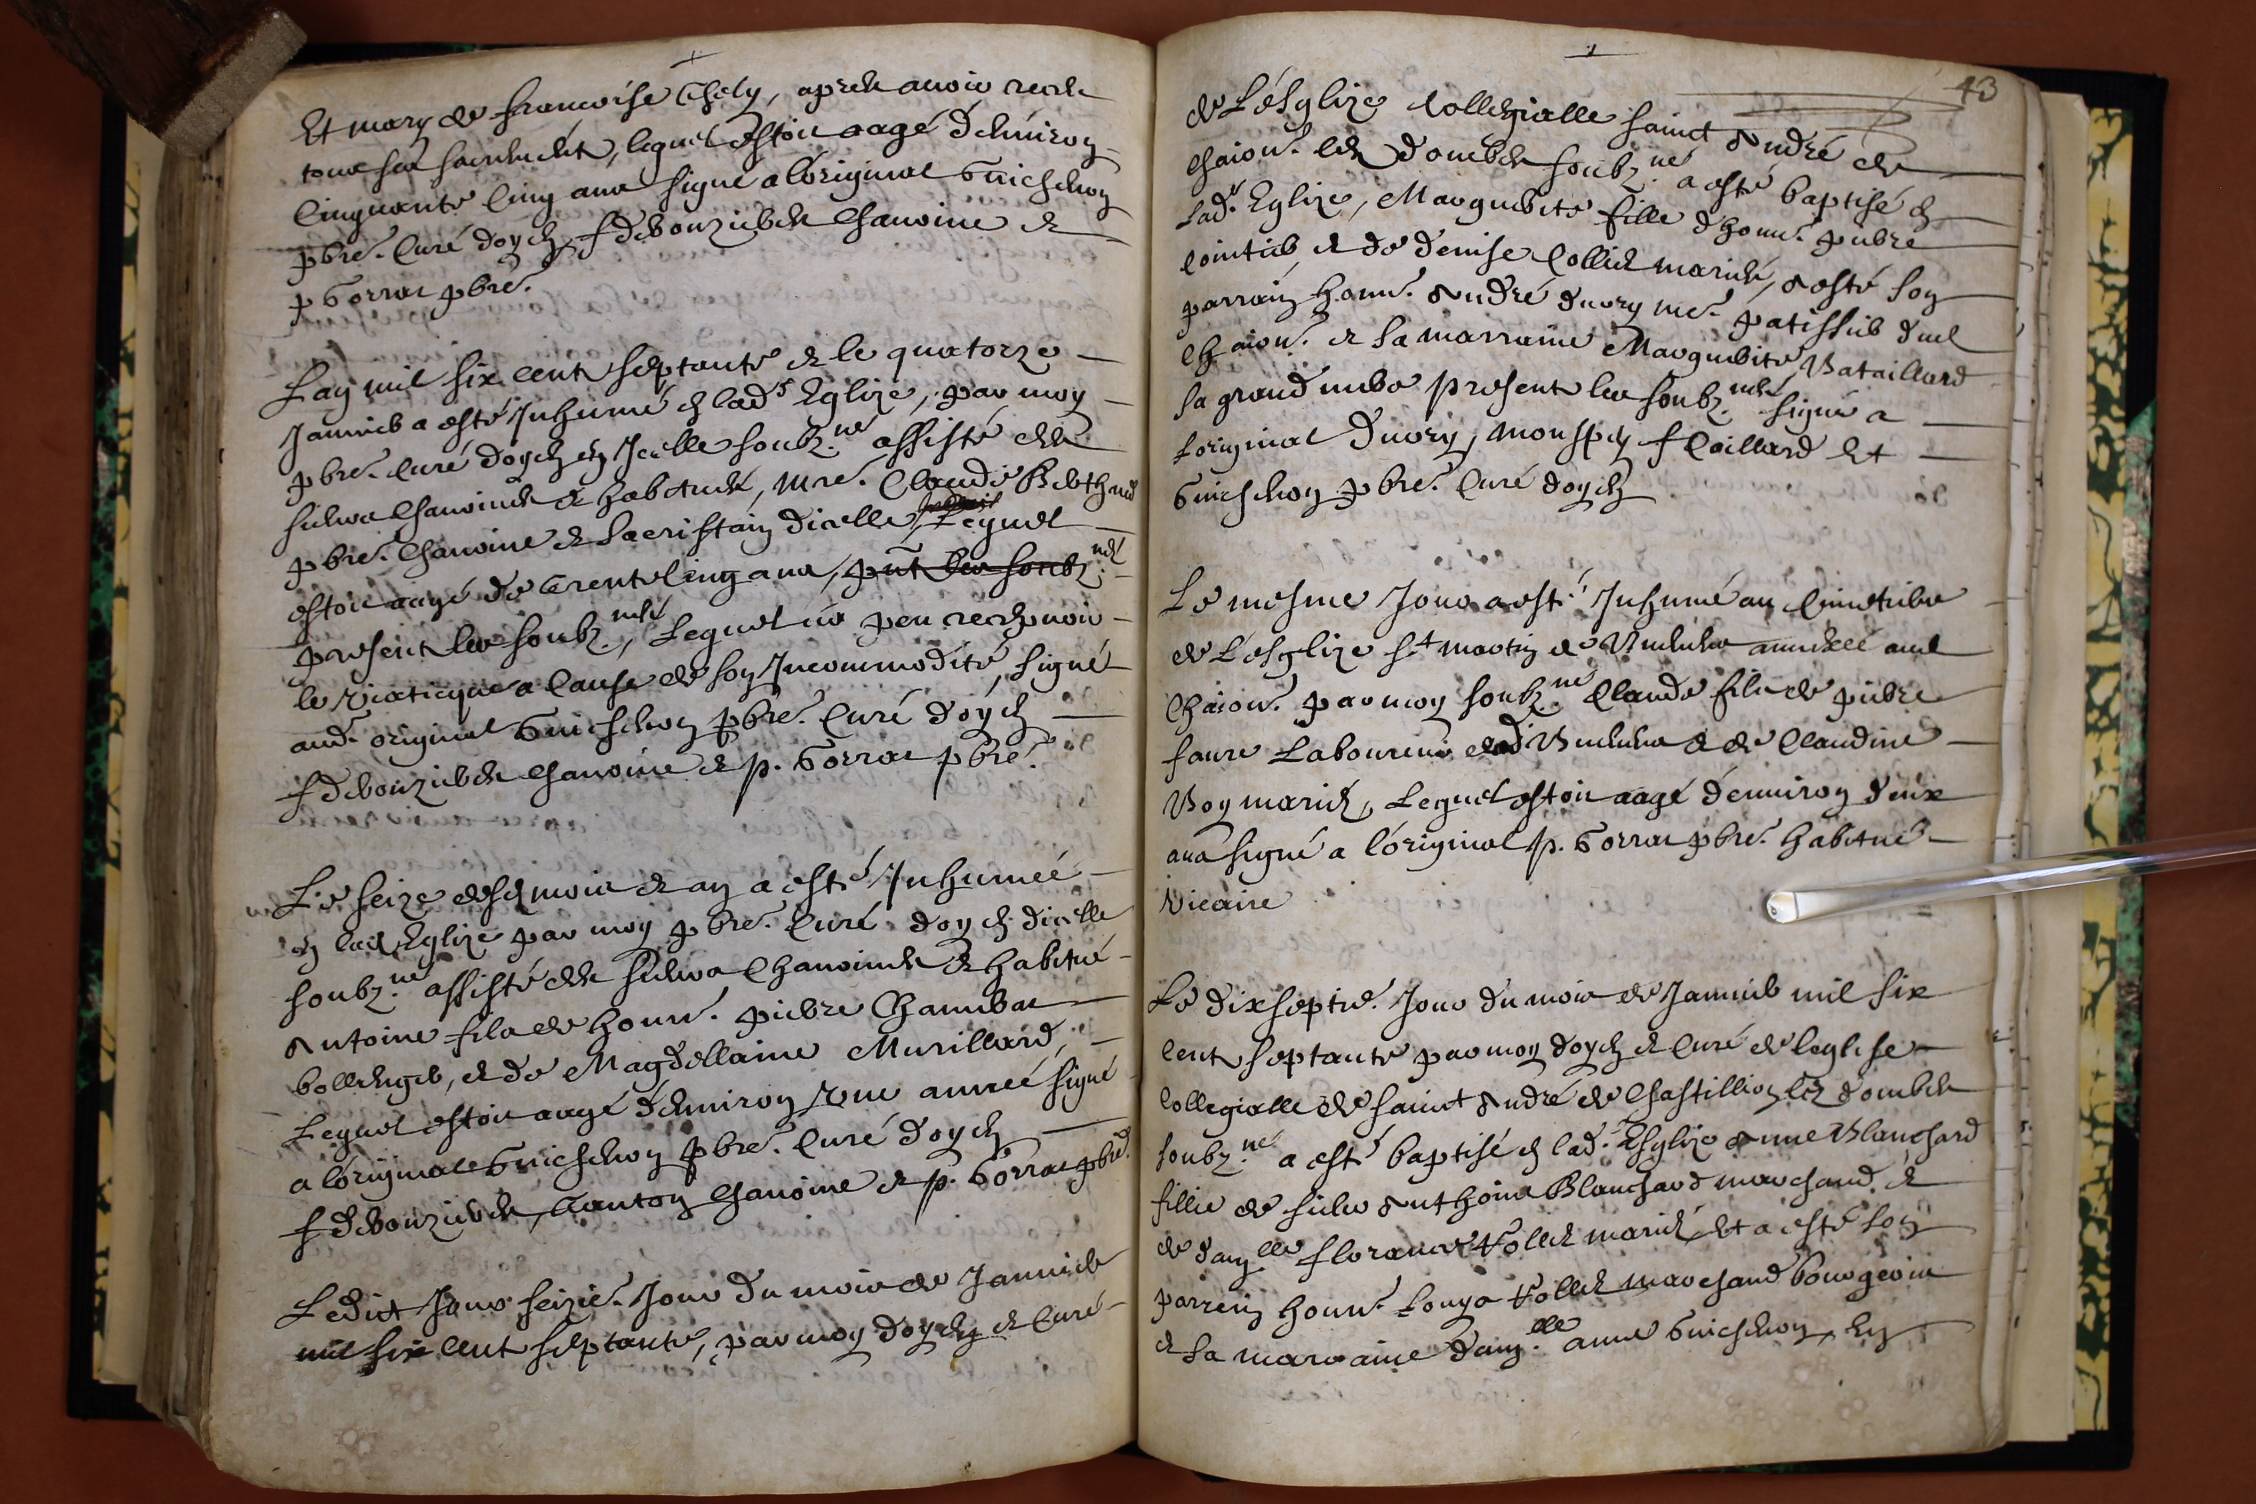 Et mary de francoise Chely, apres avoir receu
tous ses sacrements, lequel estoit aagé d'environ
Cinquante Cinq ans signé a l'original Guichenon
pbre. Curé doyen, f debourzieres Chanoine et
p Gorrat pbre.
L'an mil six cent septante et le quatorze
Janvier a esté Inhumé en lad.e Eglize, par moy
pbre. Curé doyen en Icelle soubz.né assisté des
sieurs Chanoines et habitués, mre. Claude
pbre. Chanoine et Sacristain dicelle, Lequel
estoit aagé de trente Cinq ans, pnt les soubz.nés
present les soubz.nés, Lequel na peu recepvoir
le viaticque a Cause de son Incommodité, signé
aud. original Guichenon pbre. Curé doyen
f debourzieres Chanoine et p. Gorrat pbre.
Le seize desd. mois et an a esté Inhumeé
en lad. Eglize par moy pbre. Curé doyen dicelle
soubz.né assisté des sieurs Chanoines et habitué
Antoine fils de honn. pierre
bollenger, et de Magdellaine Murillard,
Lequel estoit aagé d'environ une anneé signé
a l'original Guichenon pbre. Curé doyen
f debourzieres, Canton Chanoine et p. Gorrat pbre.
Ledict Jour seizie. Jour du mois de Janvier
mil six cent septante, par moy doyen et Curé
43
de L'esglize Collegialle sainct André de
Chaion. les dombes soubz.né a esté baptisé en
lad. Eglize, Marguerite fille d'honn. pierre
Cointier et de denise Collet mariés, a esté son
parrain honn. André duory me. patissier dud
Chaion. et sa marraine Marguerite Bataillard
sa grand mere present les soubz.nés signé a
Loriginal duory, monspey f Coillard Et
Guichenon pbre. Curé doyen
Le mesme Jour a esté Inhumé au Cimetiere
de L'esglize st martin de annexeé aud
Chaion. par moy soubz.né Claude fils de pierre
faure Laboureur dud et de Claudine
Boy mariés, Lequel estoit aagé d'environ deux
ans signé a l'original p. Gorrat pbre. habitué
vicaire
Le dixseptie. Jour du mois de Janvier mil six
cent septante par moy doyen et Curé de leglise
Collegialle de sainct André de Chastillion les dombes
soubz.né a esté baptisé en lad. Esglize Anne Blanchard
fillie de sieur Anthoine Blanchard marchand et
de dam.lle florance Vollet mariés, Et a esté son
parrein honn. Louys Vollet marchand bourgeois
et sa marraine dam.lle anne Guichenon, En